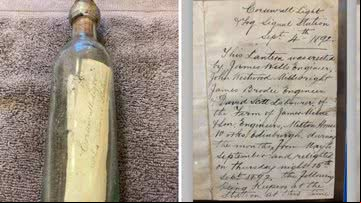 Corsewall Light
& Fog Signal Station
Sept. 4th 1892.
This Lantern was erected
by James Wells Engineer,
John Westwood Millwright
James Brodie Engineer
David Scott Labourer, of
the Firm of James
& Son Engineers, Milton House
Works, Edinburgh, during
the months from May to
September and relighted
on Thursday night 15th
Sept 1892, the following
being Keepers at the
Station at this time